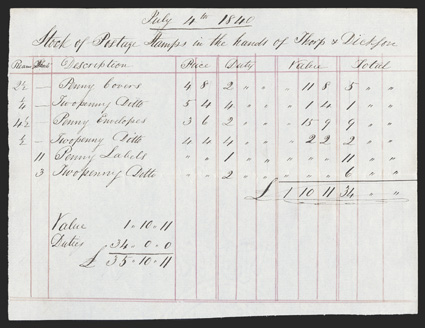 July 4th 1840
Stock of Postage Stamps in the hands of Thorp & Dickson
Ream Description Duty Value Total
2½ — Penny Covers 4 8 2 " " " 11 8 5 " "
¼ — Twopenny Ditto 5 4 4 " " " 1 4 1 " "
4½ — Penny Envelopes 3 6 2 " " " 15 9 9 " "
½ — Twopenny Ditto 4 4 4 " " " 2 2 2 " "
11 Penny Labels " " 1 " " " " " 11 " "
3 Twopenny Ditto " " 2 " " " " " 6 " "
£ 1 10 11 34 " "
Value 1 " 10 " 11
Duties 34 " 0 " 0
£ 35 " 10 " 11